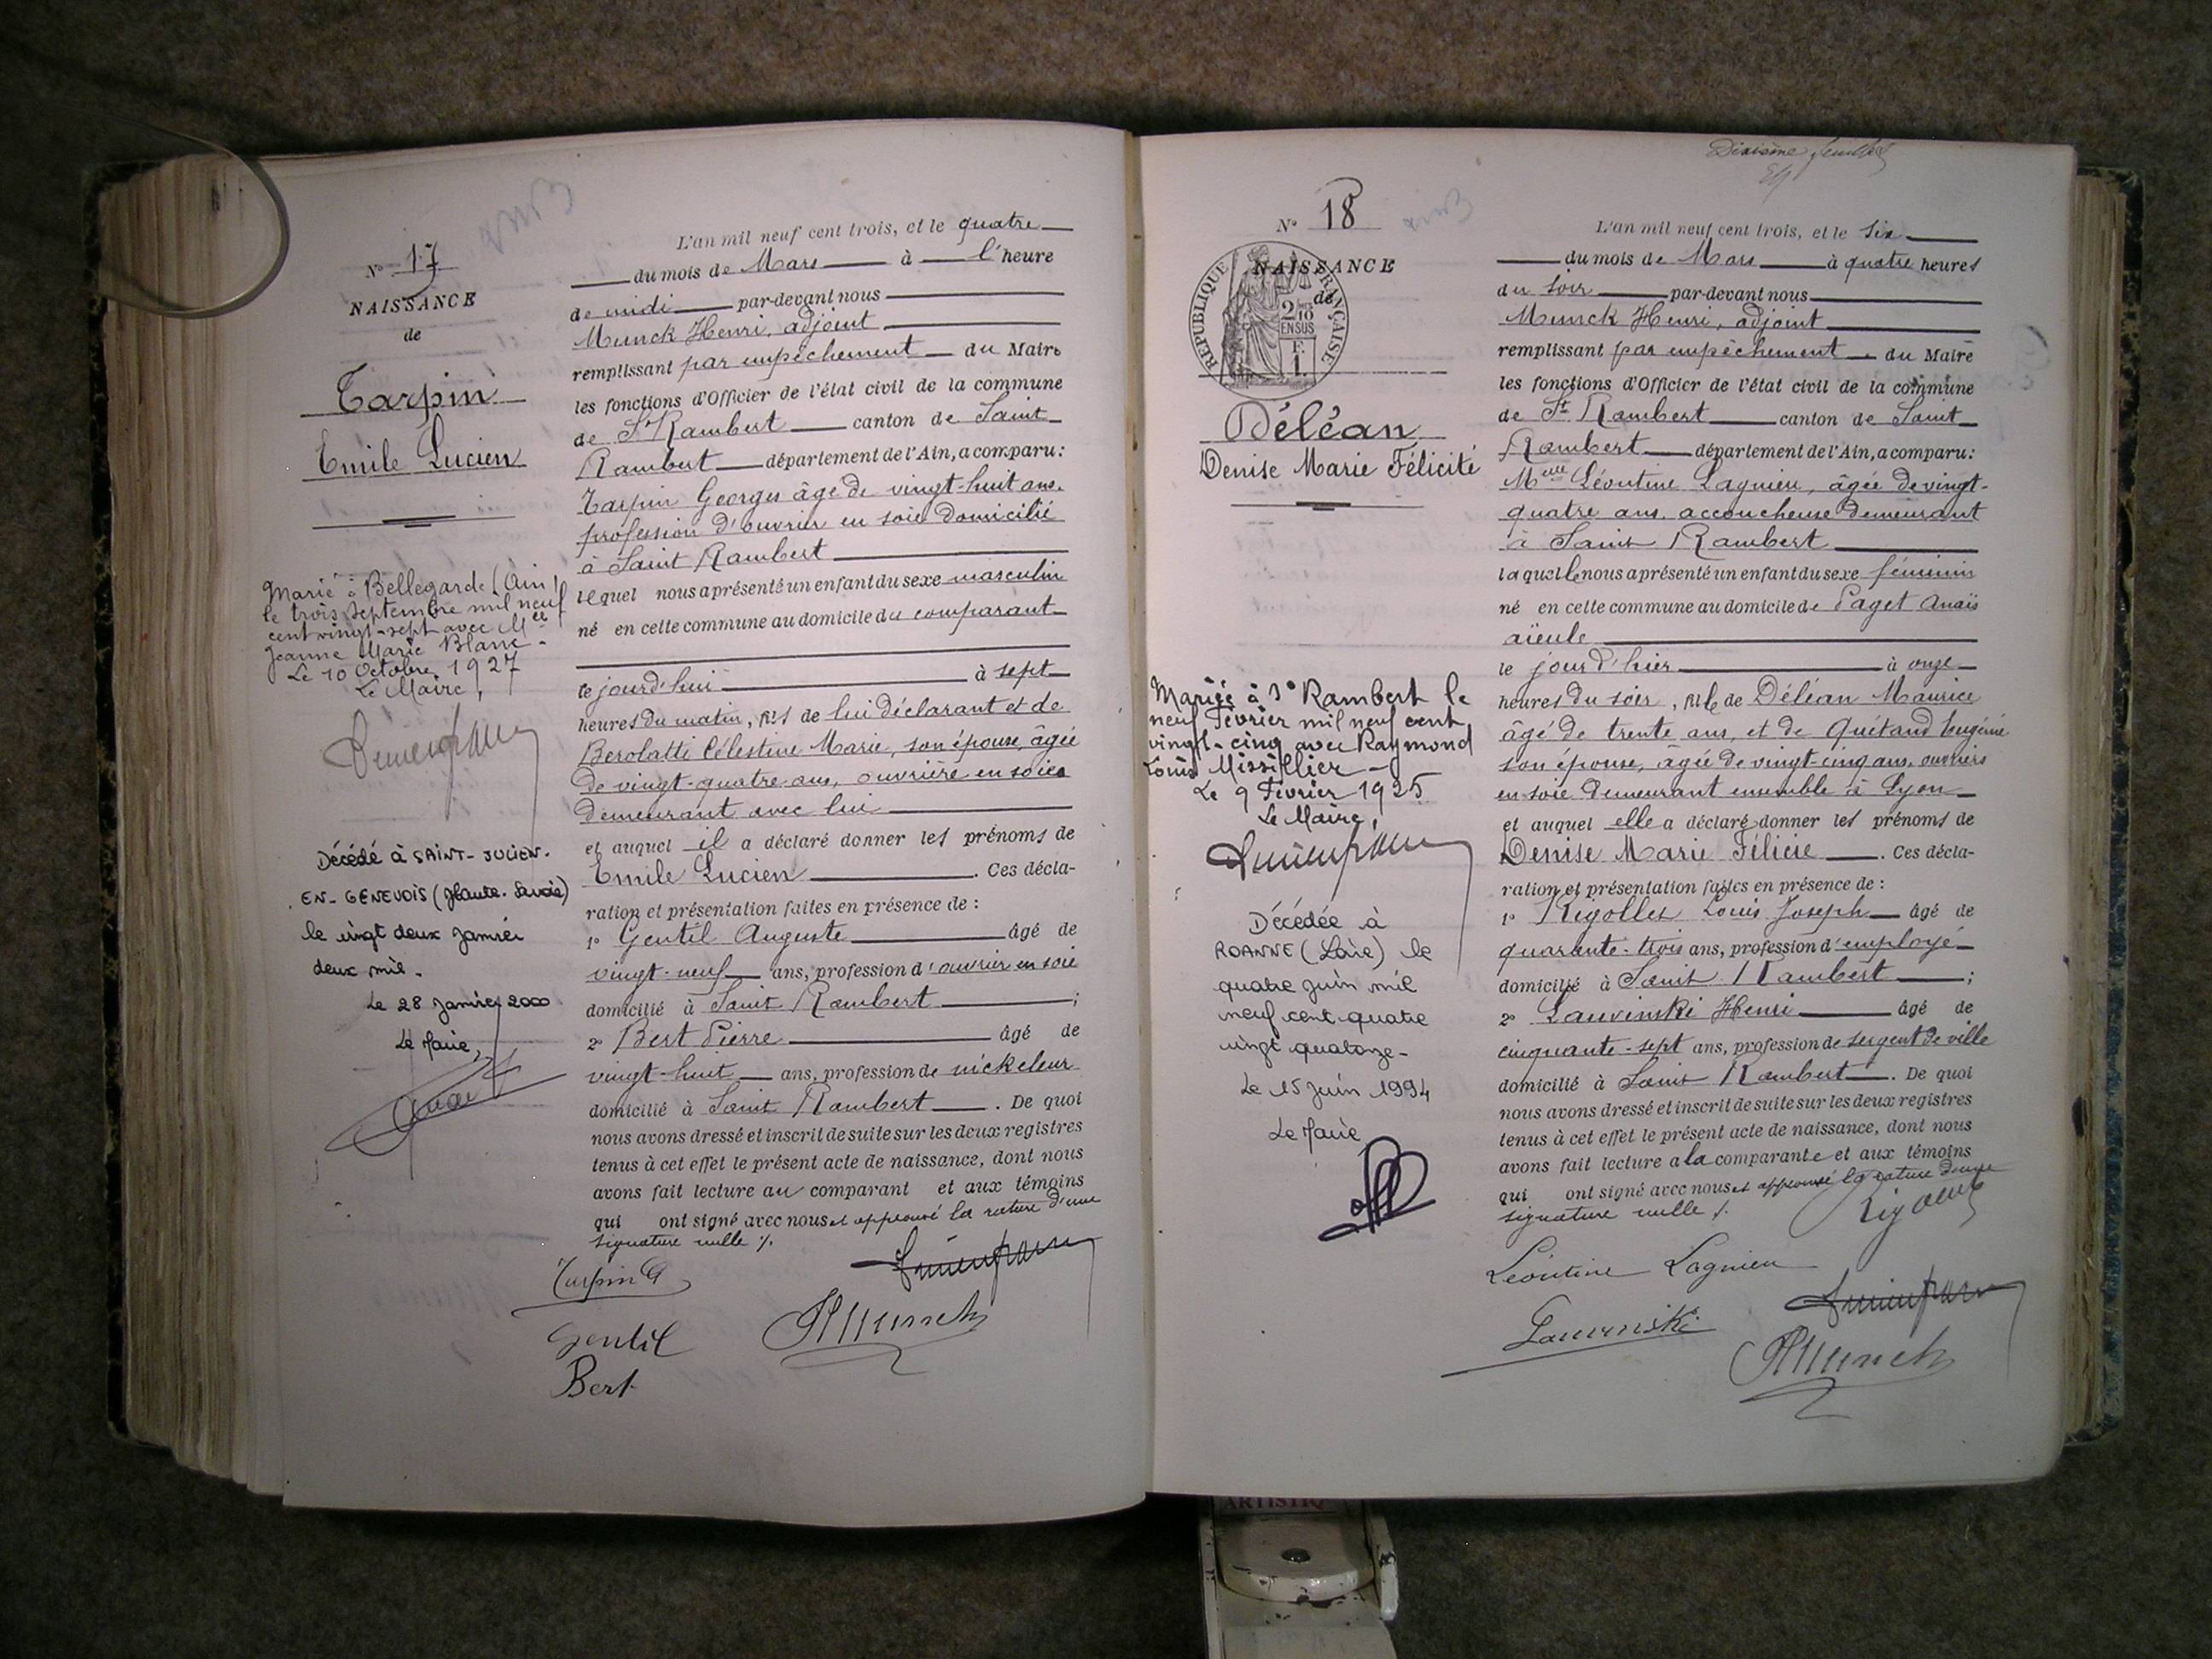 N° 17
NAISSANCE
de
Tarpin
Emile Lucien
Marié à Bellegarde (Ain)
le trois septembre mil neuf
cent vingt-sept avec Mlle
Jeanne Marie Blanc -
Le 10 Octobre 1927
Le Maire,
Décédé à SAINT-JULIEN-
EN-GENEVOIS (Haute-Savoie)
le vingt deux Janvier
deux mil.
Le 28 Janvier 2000
Le Maire,
L'an mil neuf cent trois, et le quatre
du mois de Mars à l'heure
de midi par-devant nous
Munck Henri, adjoint
remplissant par empêchement du Maire
les fonctions d'Officier de l'état civil de la commune
de St Rambert canton de Saint
Rambert département de l'Ain, a comparu :
Tarpin Georges âgé de vingt-huit ans,
profession d'ouvrier en soie domicilié
à Saint Rambert
lequel nous a présenté un enfant du sexe masculin
né en cette commune au domicile du comparant
le jourd'hui à sept
heures du matin, fils de lui déclarant et de
Berolatti Célestine Marie, son épouse, âgée
de vingt-quatre ans, ouvrière en soies
demeurant avec lui
et auquel il a déclaré donner les prénoms de
Emile Lucien . Ces décla-
ration et présentation faites en présence de :
1° Gentil Auguste âgé de
vingt-neuf ans, profession d'ouvrier en soie
domicilié à Saint Rambert ;
2° Bert Pierre âgé de
vingt-huit ans, profession de nickeleur
domicilié à Saint Rambert . De quoi
nous avons dressé et inscrit de suite sur les deux registres
tenus à cet effet le présent acte de naissance, dont nous
avons fait lecture au comparant et aux témoins
qui ont signé avec nous et approuvé la rature d'une
signature nulle ./.
Tarpin G
Gentil
HMunck
Bert
Dixième feuillet
N° 18
NAISSANCE
de
REPUBLIQUE FRANÇAISE
2/10
EN SUS
F.
1.
Déléan
Denise Marie Félicité
Mariée à St Rambert le
neuf Février mil neuf cent
vingt-cinq avec Raymond
Louis Missillier -
Le 9 Février 1925
Le Maire,
Décédée à
ROANNE (Loire) le
quatre juin mil
neuf cent quatre
vingt quatorze -
Le 15 Juin 1994
Le Maire
L'an mil neuf cent trois, et le six
du mois de Mars à quatre heures
du soir par-devant nous
Munck Henri, adjoint
remplissant par empêchement du Maire
les fonctions d'Officier de l'état civil de la commune
de St Rambert canton de Saint
Rambert département de l'Ain, a comparu :
Melle Léontine Lagnieu, âgée de vingt-
quatre ans, accoucheuse demeurant
à Saint Rambert
laquelle nous a présenté un enfant du sexe féminin
né en cette commune au domicile de Paget Anaïs
aïeule
le jour d'hier à onze
heures du soir, fille de Déléan Maurice
âgé de trente ans, et de Quétand Eugénie
son épouse, âgée de vingt-cinq ans, ouvriers
en soie demeurant ensemble à Lyon
et auquel elle a déclaré donner les prénoms de
Denise Marie Félicie . Ces décla-
ration et présentation faites en présence de :
1° Rigollet Louis Joseph âgé de
quarante-trois ans, profession d'employé
domicilié à Saint Rambert ;
2° Lauvinski Henri âgé de
cinquante-sept ans, profession de sergent de ville
domicilié à Saint Rambert . De quoi
nous avons dressé et inscrit de suite sur les deux registres
tenus à cet effet le présent acte de naissance, dont nous
avons fait lecture a la comparante et aux témoins
qui ont signé avec nous et approuvé la rature d'une
signature nulle ./.
Léontine Lagnieu
Lauvinski
HMunck
ARTISTIQ